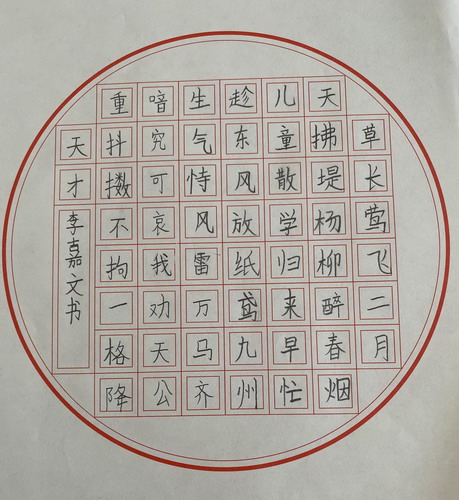 草长莺飞二月
天拂堤杨柳醉春烟
儿童散学归来早忙
趁东风放纸鸢九州
生气恃风雷万马齐
喑究可哀我劝天公
重抖擞不拘一格降
天才
李嘉文书